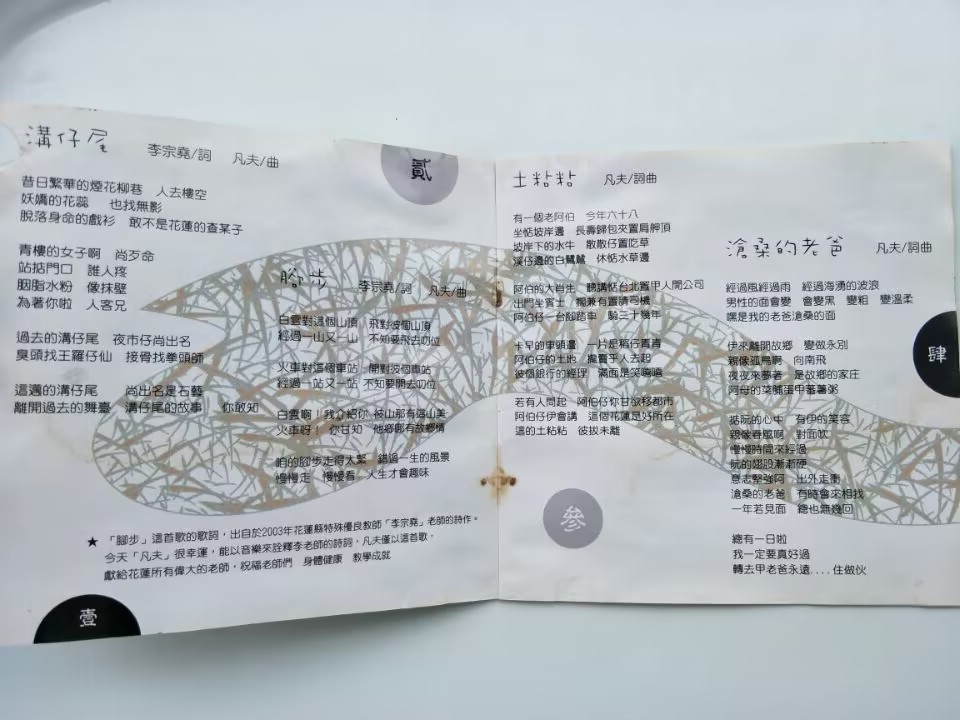 溝仔尾　李宗堯/詞　凡夫/曲
昔日繁華的煙花柳巷　人去樓空
妖嬌的花蕊　也找無影
脫落身命的戲衫　敢不是花蓮的查某子
青樓的女子啊　尚歹命
站掂門口　誰人疼
胭脂水粉　像抹壁
為著你啦　人客兄
過去的溝仔尾　夜市仔尚出名
臭頭找王羅仔仙　接骨找拳頭師
這邁的溝仔尾　尚出名是石藝
離開過去的舞臺　溝仔尾的故事　你敢知
壹
貳
腳步　李宗堯/詞　凡夫/曲
白雲對這個山頂　飛對彼個山頂
經過一山又一山　不知要飛去叨位
火車對這個車站　開對彼個車站
經過一站又一站　不知要開去叨位
白雲啊！我介紹你　被山那有這山美
火車呀！你甘知　他鄉那有故鄉情
咱的腳步走得太緊　錯過一生的風景
慢慢走　慢慢看　人生才會趣味
★「腳步」這首歌的歌詞，出自於2003年花蓮縣特殊優良教師「李宗堯」老師的詩作。
今天「凡夫」很幸運，能以音樂來詮釋李老師的詩詞，凡夫僅以這首歌，
獻給花蓮所有偉大的老師，祝福老師們　身體健康　教學成就
土粘粘　凡夫/詞曲
有一個老阿伯　今年六十八
坐惦坡岸邊　長壽歸包夾置肩胛頂
坡岸下的水牛　散散仔置吃草
溪仔邊的白鷺鷥　休惦水草邊
阿伯的大肖生　聽講惦台北置甲人開公司
出門坐賓士　擱兼有置請司機
阿伯仔一台腳踏車　騎三十幾年
卡早的車頭邊　一片是稻仔青青
阿伯仔的土地　攏賣乎人去起
彼個銀行的經理　滿面是笑嘻嘻
若有人問起　阿伯仔你甘欲移都市
阿伯仔伊會講　這個花蓮是好所在
這的土粘粘　彼拔未離
參
滄桑的老爸　凡夫/詞曲
經過風經過雨　經過海湧的波浪
男性的面會變　會變黑　變粗　變溫柔
嘿是我的老爸滄桑的面
伊來離開故鄉　變做永別
親像孤鳥啊　向南飛
夜夜來夢著　是故鄉的家庄
阿母的菜脯蛋甲蕃薯粥
掂阮的心中　有伊的笑容
親像春風啊　對面吹
慢慢時間來經過
阮的翅股漸漸硬
意志堅強阿　出外走衝
滄桑的老爸　有時會來相找
一年若見面　總也無幾回
總有一日啦
我一定要真好過
轉去甲老爸永遠....住做伙
肆